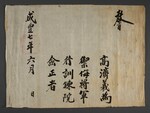 高濟義為
禦侮將軍
行訓鍊院
僉正者
咸豐七年六月 日